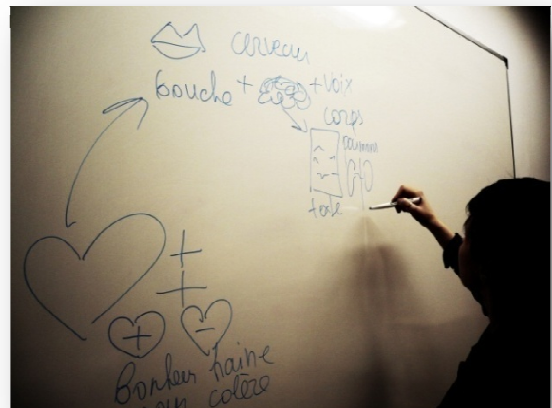 cerveau
bouche + + voix
corps
poumons
texte
+
+
+ -
Bonheur haine
colère